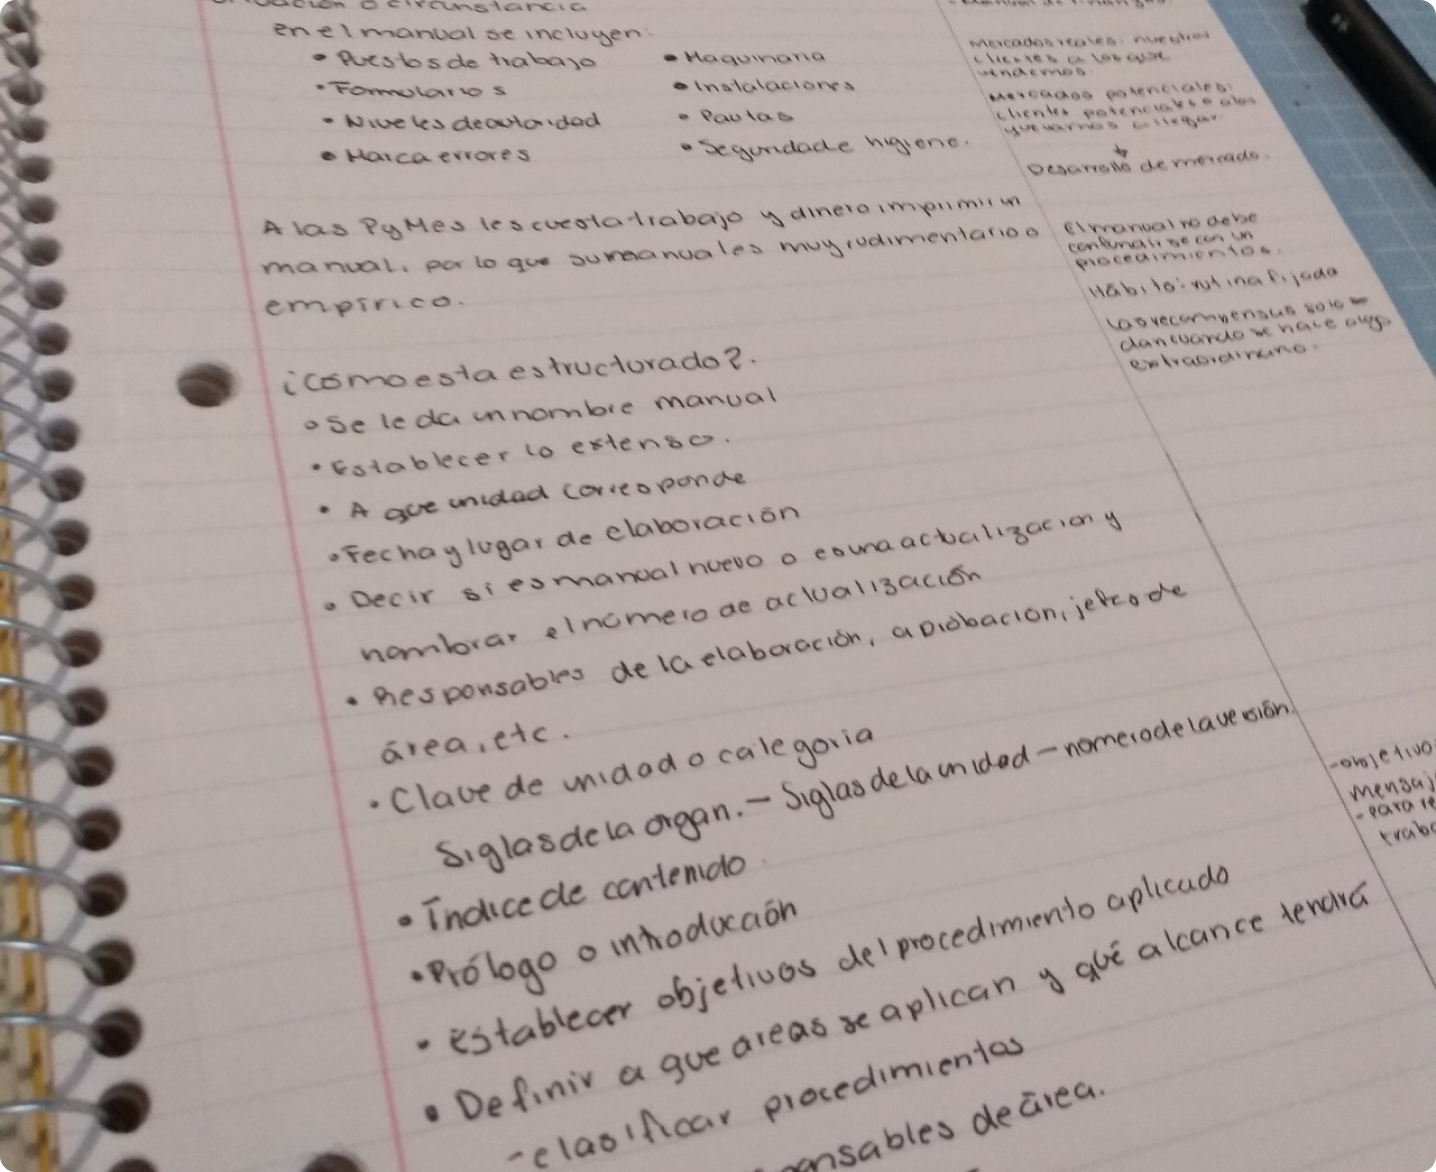 o circunstancia
en el manual se incluyen:
• Puestos de trabajo
• Formularios
• Niveles de autoridad
• Marca errores
• Maquinaria
• Instalaciones
• Pautas
• Seguridad e higiene.
A las PyMes les cuesta trabajo y dinero imprimir un
manual, por lo que su manual es muy rudimentario o
empírico.
¿cómo esta estructurado?.
• Se le da un nombre manual
• Establecer lo extenso.
• A que unidad corresponde
• Fecha y lugar de elaboración
• Decir si es manual nuevo o es una actualizacion y
nombrar el número de actualización
• Responsables de la elaboración, aprobacion, jefes de
área, etc.
• Clave de unidad o categoria
Siglas de la organ. — Siglas de la unidad — numero de la versión.
• Índice de contenido
• Prólogo o introducción
• Establecer objetivos del procedimiento aplicado
• Definir a que areas se aplican y qué alcance tendrá
- clasificar procedimientos
nsables de área.
Mercados reales: nuestros
clientes a los que
vendemos.
Mercados potenciales:
clientes potenciales o a los
que vamos a llegar.
↓
Desarrollo de mercado.
El manual no debe
confundirse con un
procedimientos.
Hábito: rutina fijada
Las recompensas solo se
dan cuando se hace algo
extraordinario.
- objetivo
mensaj
- para re
trab